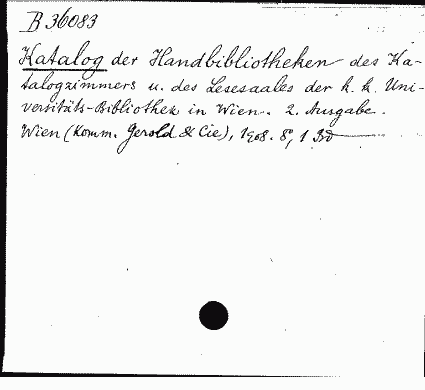 B 36083
Katalog der Handbibliotheken des Ka-
talogzimmers u. des Lesesaales der k. k. Uni-
versitäts-Bibliothek in Wien. 2. Ausgabe.
Wien (Komm. Gerold & Cie), 1908. 8°, 1 Bd